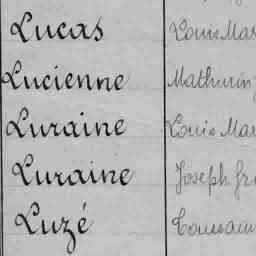 Lucas Louis Mar
Lucienne Mathurin
Luraine Louis Mar
Luraine Joseph Fr
Luzé Toussain